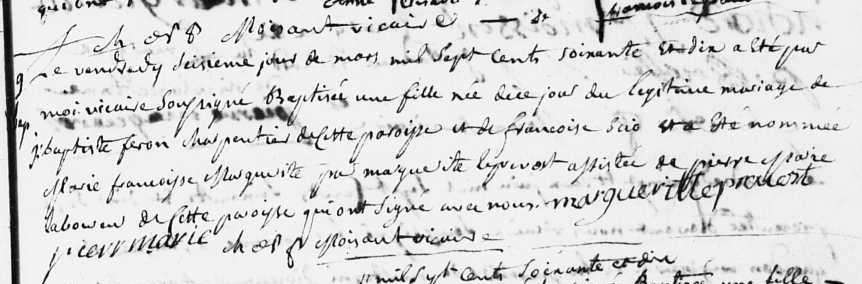 ch es f Moisant vicaire
Le vendredy seisieme jour de mars mil Sept Cents soixante et dix a eté par
moi vicaire Soussigné Baptisée une fille née dice jour du legitime mariage de
j: baptiste feron charpentier de cette paroisse et de francoise Scio et a été nommée
Marie francoisse Marguerite par marguerite leprevost assistée de pierre Marie
laboureur de Cette paroisse qui ont Signé avec nous. margueritte prevost
pierr marie ch es f Moisant vicaire
mil Sept Cents soixante et dix
Baptisée une fille